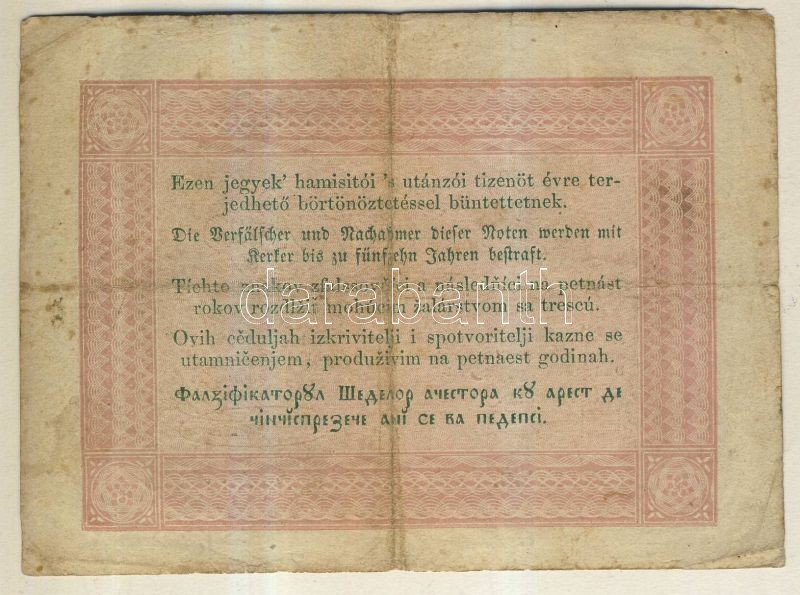 Ezen jegyek' hamisitói 's utánzói tizenöt évre ter-
jedhető börtönöztetéssel büntettetnek.
Die Verfälscher und Nachahmer dieser Noten werden mit
Kerker bis zu fünfzehn Jahren bestraft.
Tíchto znakov a následňíci na petnást
rokov rozdlžiť mohúcim žalárstvom sa trescú.
darabanth
Ovih cěduljah izkrivitelji i spotvoritelji kazne se
utamničenjem, produživim na petnaest godinah.
Фалзіфікаторꙋл Шеделор ачестора кꙋ арест де
чінчіспрезече ані се ва педепсі.